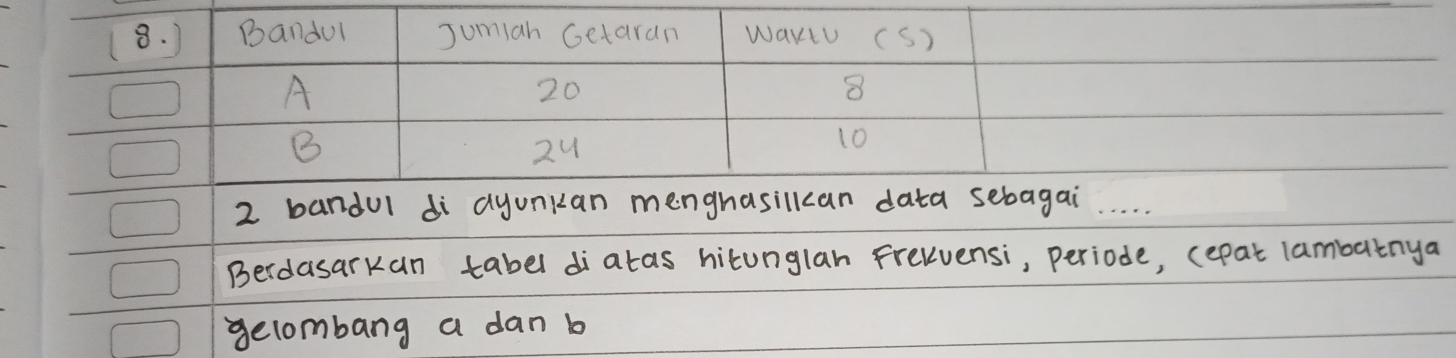 8. Bandul Jumlah Getaran Waktu (s)
A 20 8
B 24 10
2 bandul di ayunkan menghasilkan data sebagai .....
Berdasarkan tabel di atas hitunglah Frekuensi, Periode, cepat lambatnya
gelombang a dan b